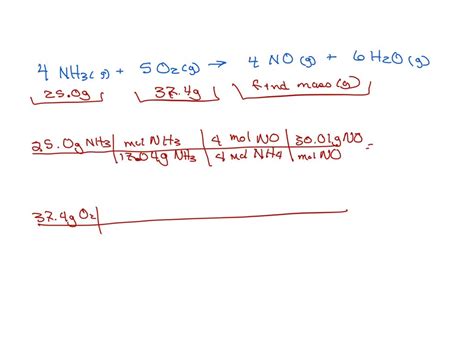 4 NH3(g) + 5 O2(g) → 4 NO(g) + 6 H2O(g)
25.0g 37.4g find mass(g)
25.0g NH3 | mol NH3 | 4 mol NO | 30.01g NO =
17.04g NH3 | 4 mol NH4 | mol NO
37.4g O2